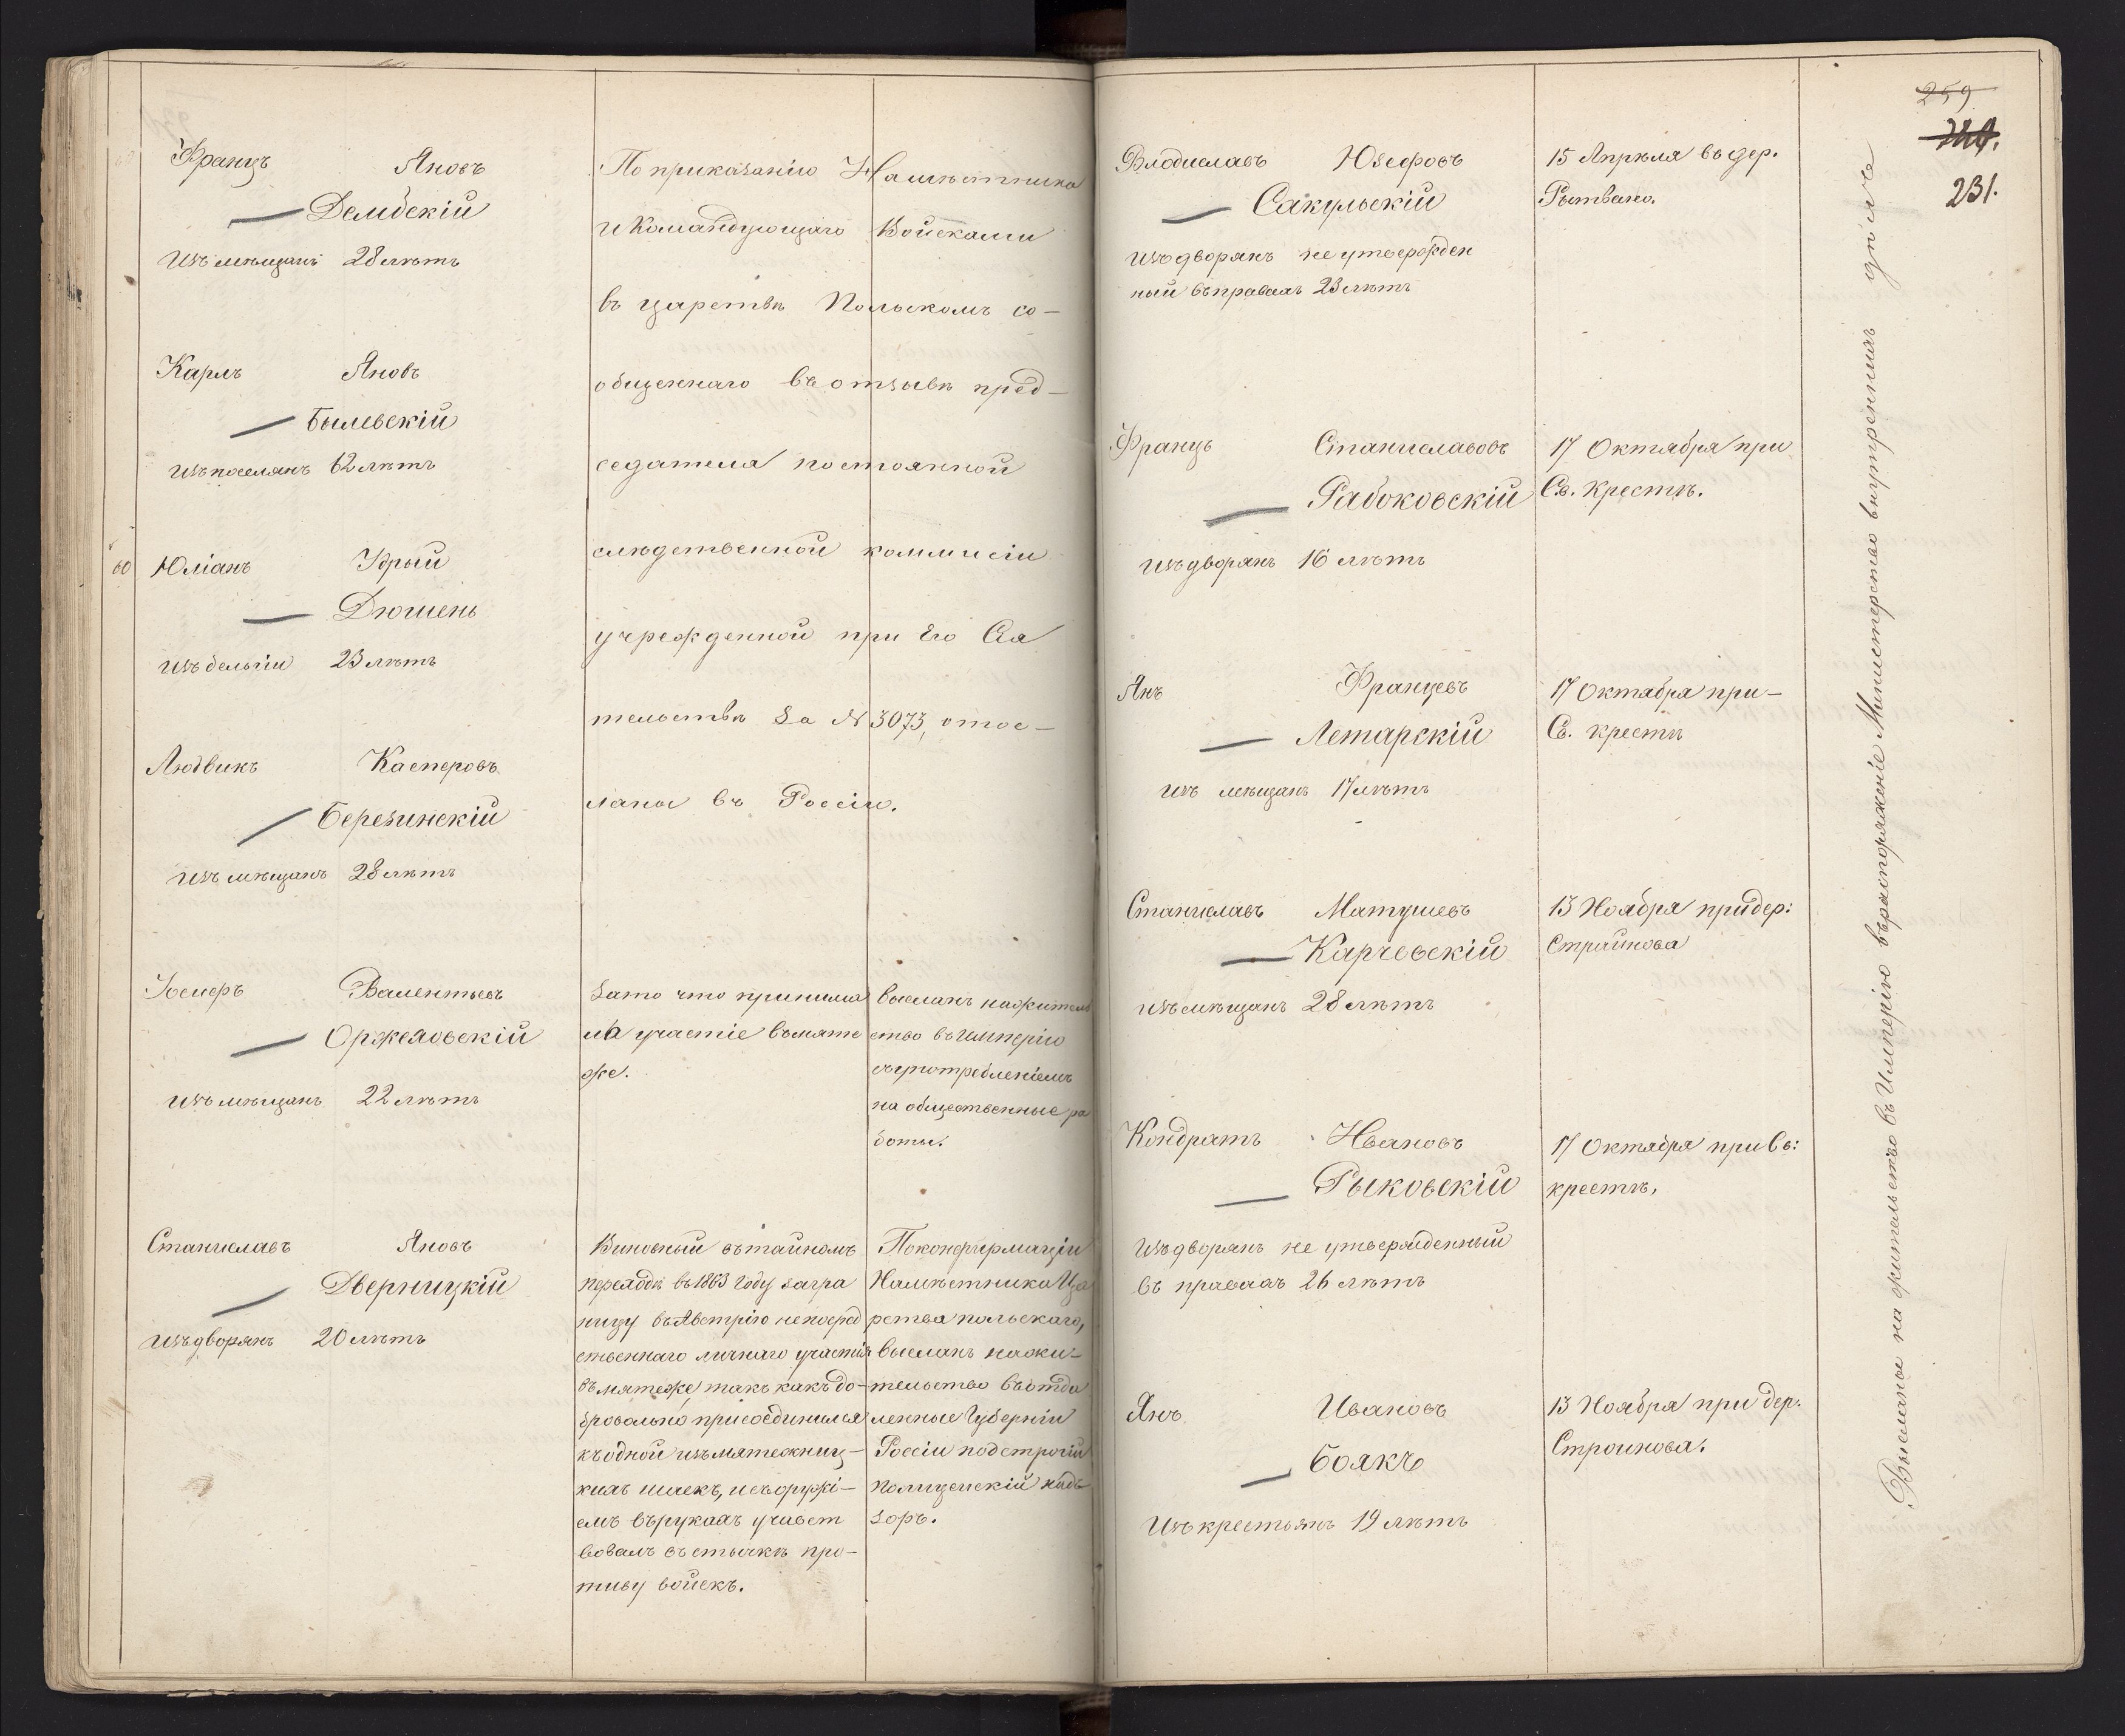 Францъ Яновъ
Дембскій
Изъ мѣщанъ 28 лѣтъ
Карлъ Яновъ
Былевскій
Изъ поселянъ 62 лѣтъ
60 Юліанъ Юрый
Дюшень
Изъ бельгіи 23 лѣтъ
Людвикъ Касперовъ
Березинскій
Изъ мѣщанъ 28 лѣтъ
Валентьевъ
Оржеховскій
Изъ мѣщанъ 22 лѣтъ
Станиславъ Яновъ
Дверницкій
Изъ дворянъ 20 лѣтъ
По приказанію Намѣстника
и Командующаго Войсками
въ царствѣ Польскомъ со-
общеннаго въ отзывѣ пред-
седателя постоянной
слѣдственной коммисіи
учрежденной при Его Сія
тельствѣ за № 3073, отос-
ланы въ Россію.
За то что принима
лъ участіе въ мяте
же.
Высланъ на житель
ство въ Имперію
съ употребленіемъ
на общественные ра
боты.
Виновный въ тайномъ
переходѣ въ 1863 году загра
ницу въ Австрію непосред
ственнаго личнаго участія
въ мятежѣ, такъ какъ до-
бровольно присоединился
къ одной изъ мятежниц-
кихъ шаекъ, и съ оружі-
емъ въ рукахъ участ
вовалъ въ стычкѣ про-
тиву войскъ.
По конфирмаціи
Намѣстника Ца
рства польскаго,
высланъ на жи-
тельство въ отда
ленные Губерніи
Россіи подъ строгій
полицейскій над
зоръ.
259
231.
Владиславъ Юзефовъ
Сакульскій
Изъ дворянъ не утвержден
ный въ правахъ 23 лѣтъ
15 Апрѣля въ дер.
Рытвяно.
Францъ Станиславовъ
Рабоковскій
Изъ дворянъ 16 лѣтъ
17 Октября при
Св. Крестѣ.
Янъ Францевъ
Летарскій
Изъ мѣщанъ 17 лѣтъ
17 Октября при-
Св. крестѣ
Станиславъ Матушевъ
Карчевскій
Изъ мѣщанъ 28 лѣтъ
13 Ноября при дер:
Стройнова
Кондратъ Ивановъ
Рыковскій
Изъ дворянъ не утвержденный
въ правахъ 26 лѣтъ
17 Октября при Св:
крестѣ,
Янъ Ивановъ
Боякъ
Изъ крестьянъ 19 лѣтъ
13 Ноября при дер.
Строинова.
Высланы на жительство въ Имперію въ распоряженіе Министерства внутреннихъ дѣлъ